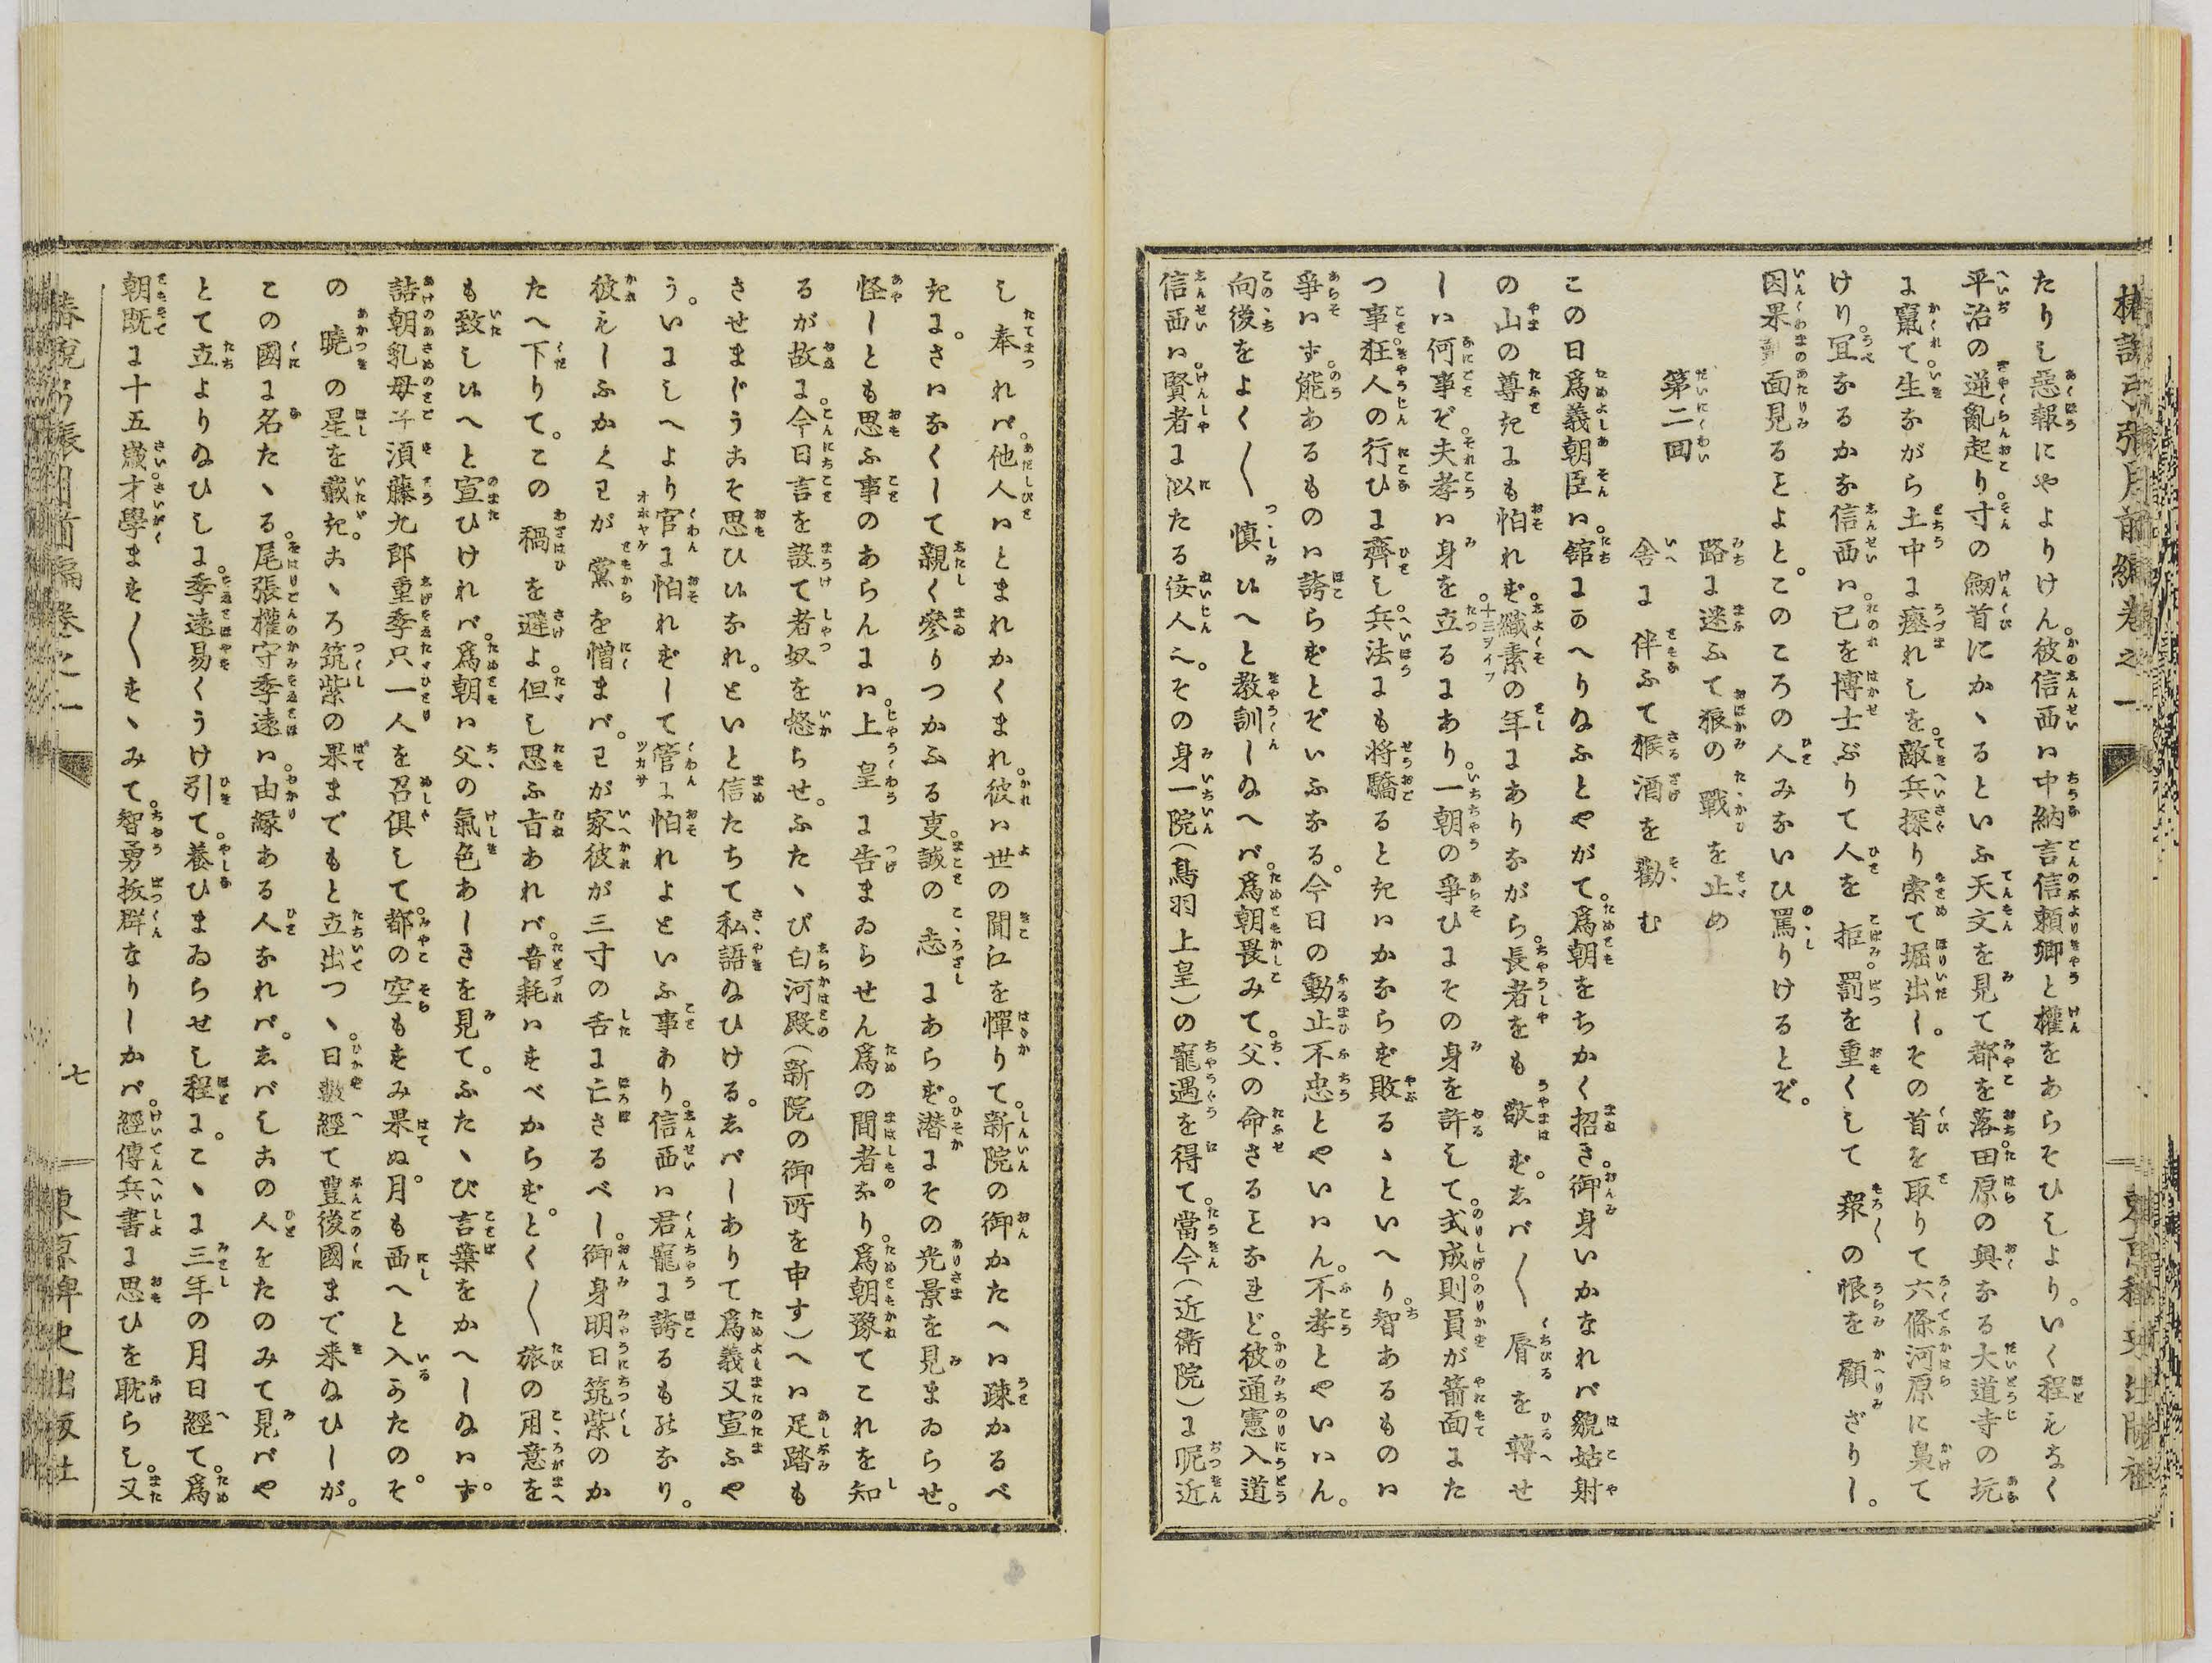 椿説弓張月前編卷之一
たりし惡報にやよりけん。彼信西ハ中納言信頼卿と權をあらそひしより。いく程もなく
平治の逆亂起り。寸の劔首にかゝるといふ天文を見て都を落。田原の奥なる大道寺の坑
に竄て。生ながら土中に瘞れしを。敵兵探り索て堀出し。その首を取りて六條河原に梟て
けり。冝なるかな信西ハ。已を博士ぶりて人を拒み。罰を重くして衆の恨を顧ざりし。
因果覿面見るとよと。このころの人みないひ罵りけるとぞ。
第二回
路に迷ふて狼の戰を止め
舎に伴ふて猴酒を勸む
この日爲義朝臣ハ。舘にかへり給ふとやがて。爲朝をちかく招き。御身いかなれバ貌姑射
の山の尊きにも怕れず。纔十三ヲイフ素の年にありながら。長者をも敬ず。しバ〱脣を轉せ
しハ何事ぞ。夫孝ハ身を立るにあり。一朝の爭ひにその身を許して。式成則員が箭面にた
つ事。狂人の行ひに齊し。兵法にも将驕るときハかならず敗るゝといへり。智あるものハ
爭ハず。能あるものハ誇らずとぞいふなる。今日の動止不忠とやいハん。不孝とやいハん。
向後をよく〱愼ひへと教訓し給へバ。爲朝畏みて。父の命さることなれど。彼通憲入道
信西ハ。賢者に似たる佞人也。その身一院(鳥羽上皇)の寵遇を得て。當今(近衛院)に昵近
し奉れバ。他人ハとまれかくまれ。彼ハ世の聞江を憚りて。新院の御かたへハ疎かるべ
きに。さハなくして親く參りつかふる事。誠の志にあらず。潜にその光景を見まゐらせ。
怪しとも思ふ事のあらんにハ。上皇に告まゐらせん爲の間者なり。爲朝豫てこれを知
るが故に。今日言を設て者奴を怒らせ。ふたゝび白河殿(新院の御所を申す)へハ足踏も
させまじうこそ思ひひなれ。といと信たちて私語給ひける。しバしありて爲義又宣ふや
う。いにしへより官オホヤケに怕れずして管ツカサに怕れよといふ事あり。信西ハ君寵に誇るものなり。
彼もしふかくわが黨を憎まバ。わが家彼が三寸の舌に亡さるべし。御身明日筑紫のか
たへ下りて。この禍を避よ。但し思ふ旨あれバ。音耗ハすべからず。とく〱旅の用意を
も致しひへと宣ひけれバ。爲朝ハ父の氣色あしきを見て。ふたゝび言葉をかへし給ハず。
詰朝乳母子須藤九郎重季只一人を召倶して。都の空もすみ果ぬ。月も西へと入かたのそ
の曉の星を戴き。こゝろ筑紫の果までもと立出つゝ。日數經て豊後國まで来給ひしが。
この國に名たゝる。尾張權守季遠ハ。由縁ある人なれバ。しバしこの人をたのみて見バや
とて立より給ひしに。季遠易くうけ引て。養ひまゐらせし程に。こゝに三年の月日經て。爲
朝既に十五歳。才學ます〱すゝみて。智勇抜群なりしかバ。經傳兵書に思ひを耽らし。又
椿説弓張月前編卷之一
七
東京稗史出版社